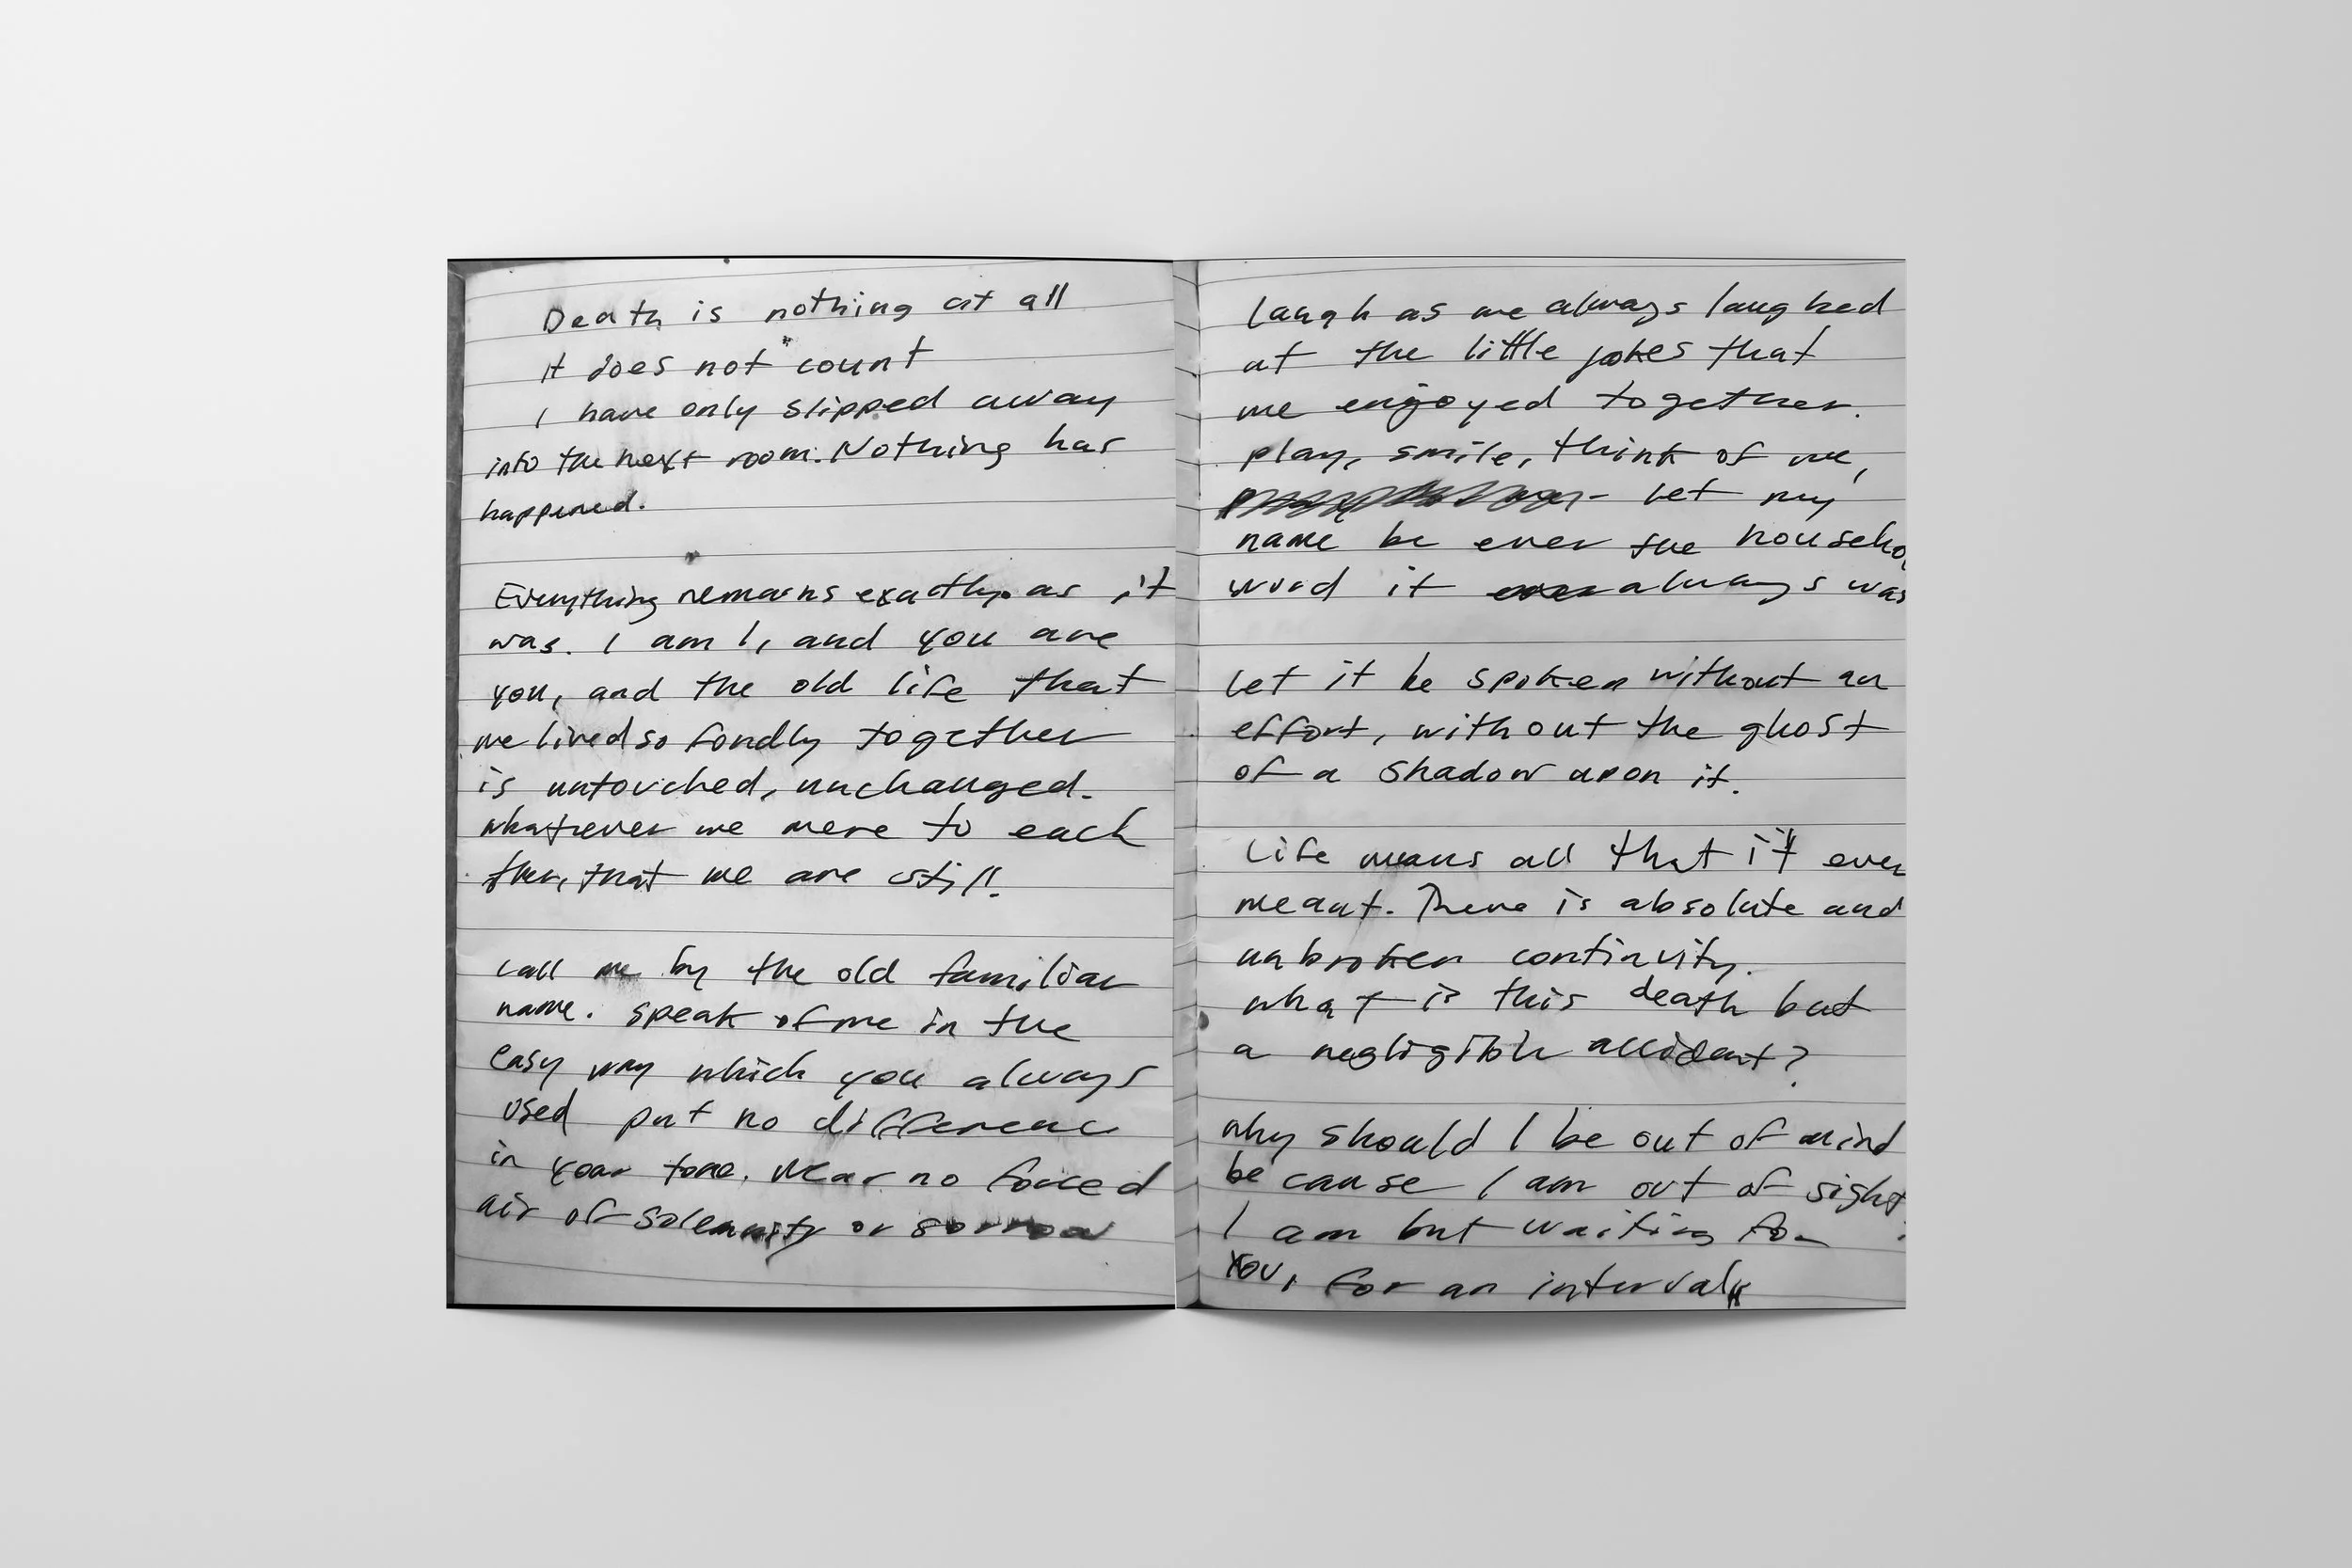 Death is nothing at all
it does not count
I have only slipped away
into the next room. Nothing has
happened.
Everything remains exactly as it
was. I am I, and you are
you, and the old life that
we lived so fondly together
is untouched, unchanged.
whatever we were to each
ther, that we are still.
call me by the old familiar
name. speak of me in the
easy way which you always
used put no difference
in your tone. Wear no forced
air of solemnity or sorrow
Laugh as we always laughed
at the little jokes that
we enjoyed together.
play, smile, think of me,
let my
name be ever the househo
word it always was
Let it be spoken without an
effort, without the ghost
of a shadow upon it.
Life means all that it ever
meant. There is absolute and
unbroken continuity.
what is this death but
a negligible accident?
why should I be out of mind
because I am out of sight
I am but waiting for
you, for an interval